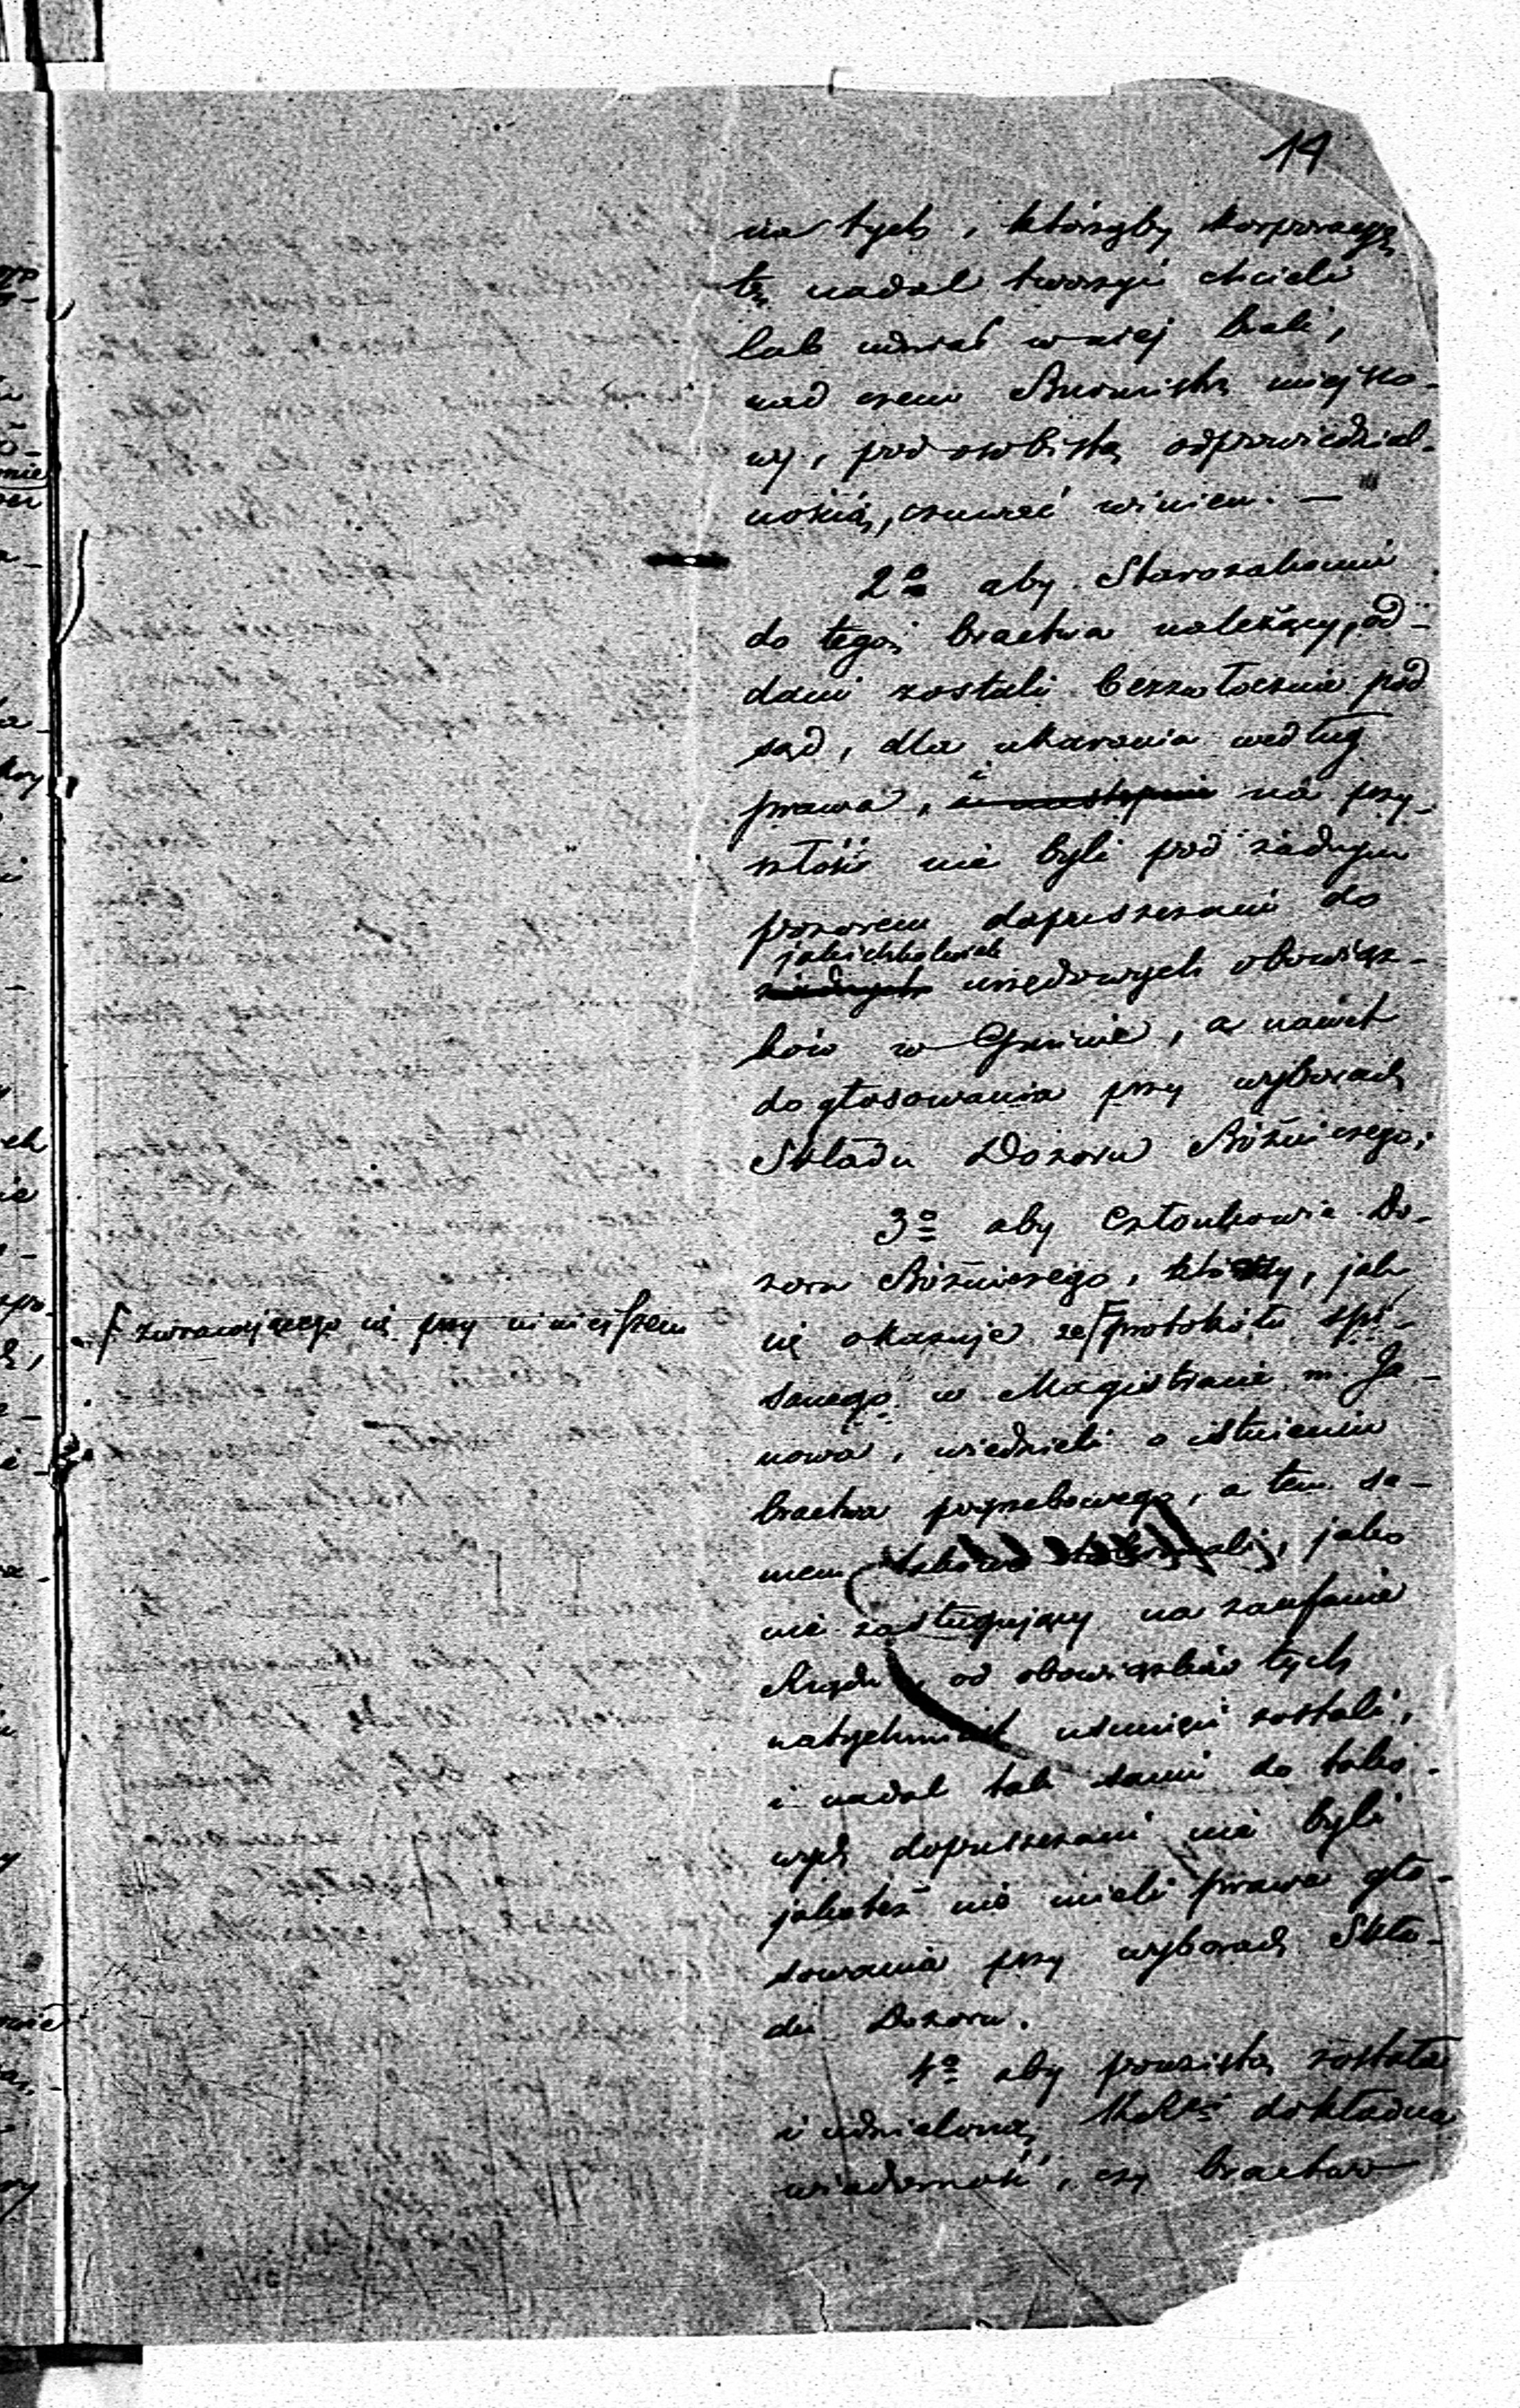 14
na tych, którzyby korporacyą
tę nadal tworzyć chcieli
lub udział w niej brali,
nad czem Burmistrz miejsco-
wy, pod osobistą odpowiedzial-
nością, czuwać winien. —
2o aby Starozakonni
do tegoż bractwa należący, od-
dani zostali bezzwłocznie pod
sąd, dla ukarania według
prawa, i na przy-
szłość nie byli pod żadnym
pozorem dopuszczani do
jakichkolwiek
żadnych urzędowych obowiąz-
ków w Gminie, a nawet
do głosowania przy wyborach
Składu Dozoru Bóżniczego;
3o aby Członkowie Do-
zoru Bóżniczego, którzy, jak
się okazuje ze protokółu spi-
ƒ zwracającego się przy niniejszem
sanego w Magistracie m. Ja-
nowa, wiedzieli o istnieniu
bractwa pogrzebowego, a tem sa-
mem jako
nie zasługujący na zaufanie
Rządu, od obowiązków tych
natychmiast usunięci zostali,
i nadal tak sami do tako-
wych dopuszczani nie byli
jakoteż nie mieli prawa gło-
sowania przy wyborach Skła-
du Dozoru.
4o aby powziętą została
i udzieloną dokładna
wiadomość, czy bractwo